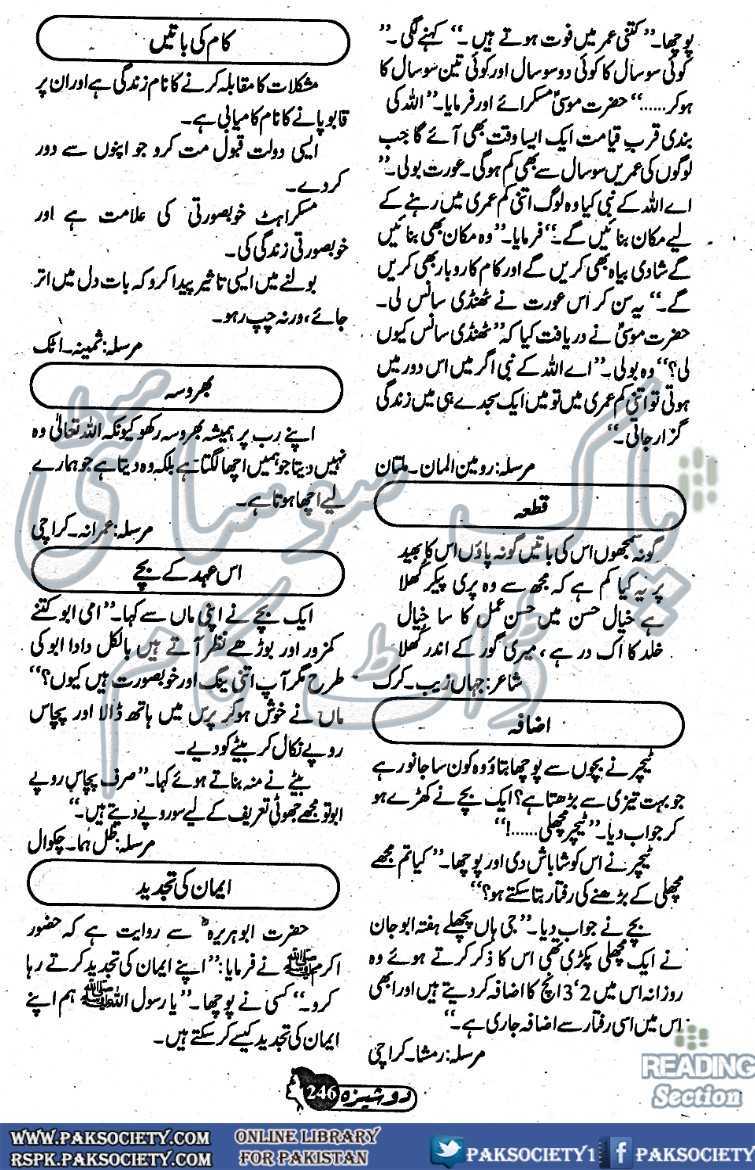 پوچھا۔’’ کتنی عمر میں فوت ہوتے ہیں۔‘‘ کہنے لگی۔’’
کوئی سو سال کا کوئی دو سو سال اور کوئی تین سو سال کا
ہو کر......‘‘ حضرت موسیٰؑ مسکرائے اور فرمایا۔’’ اللہ کی
بندی قرب قیامت ایک ایسا وقت بھی آئے گا جب
لوگوں کی عمریں سو سال سے بھی کم ہو گی۔ عورت بولی۔’’
اے اللہ کے نبی کیا وہ لوگ اتنی کم عمری میں رہنے کے
لیے مکان بنائیں گے۔‘‘ فرمایا۔’’ وہ مکان بھی بنائیں
گے شادی بیاہ بھی کریں گے اور کام کاروبار بھی کریں
گے۔‘‘ یہ سن کر اس عورت نے ٹھنڈی سانس لی۔
حضرت موسیٰؑ نے دریافت کیا کہ’’ ٹھنڈی سانس کیوں
لی؟‘‘ وہ بولی۔’’ اے اللہ کے نبی اگر میں اس دور میں
ہوتی تو اتنی کم عمری میں تو میں ایک سجدے ہی میں زندگی
گزار جاتی۔‘‘
مرسلہ: رومین المان۔ ملتان
قطعہ
گو نہ سمجھوں اس کی باتیں گو نہ پاؤں اس کا بھید
پر یہ کیا کم ہے کہ مجھ سے وہ پری پیکر کھلا
ہے خیال حسن میں حسن عمل کا سا خیال
خلد کا اک در ہے، میری گور کے اندر کھلا
شاعر: جہاں زیب۔ کرک
اضافہ
ٹیچر نے بچوں سے پوچھا بتاؤ وہ کون سا جانور ہے
جو بہت تیزی سے بڑھتا ہے؟ ایک بچے نے کھڑے ہو
کر جواب دیا۔’’ ٹیچر مچھلی......!‘‘
ٹیچر نے اس کو شاباش دی اور پوچھا۔’’ کیا تم مجھے
مچھلی کے بڑھنے کی رفتار بتا سکتے ہو؟‘‘
بچے نے جواب دیا۔’’ جی ہاں پچھلے ہفتہ ابو جان
نے ایک مچھلی پکڑی تھی اس کا ذکر کرتے ہوئے وہ
روزانہ اس میں 2’3 انچ کا اضافہ کر دیتے ہیں اور ابھی
اس میں اسی رفتار سے اضافہ جاری ہے۔‘‘
مرسلہ: رمشا۔ کراچی
کام کی باتیں
مشکلات کا مقابلہ کرنے کا نام زندگی ہے اور ان پر
قابو پانے کا نام کامیابی ہے۔
ایسی دولت قبول مت کرو جو اپنوں سے دور
کر دے۔
مسکراہٹ خوبصورتی کی علامت ہے اور
خوبصورتی زندگی کی۔
بولنے میں ایسی تاثیر پیدا کرو کہ بات دل میں اتر
جائے، ورنہ چپ رہو۔
مرسلہ: ثمینہ۔ اٹک
بھروسہ
اپنے رب پر ہمیشہ بھروسہ رکھو کیونکہ اللہ تعالیٰ وہ
نہیں دیتا جو ہمیں اچھا لگتا ہے بلکہ وہ دیتا ہے جو ہمارے
لیے اچھا ہوتا ہے۔
مرسلہ: عمرانہ۔ کراچی
اس عہد کے بچے
ایک بچے نے اپنی ماں سے کہا۔’’ امی ابو کتنے
کمزور اور بوڑھے نظر آتے ہیں بالکل دادا ابو کی
طرح مگر آپ اتنی ینگ اور خوبصورت ہیں کیوں؟‘‘
ماں نے خوش ہو کر پرس میں ہاتھ ڈالا اور پچاس
روپے نکال کر بیٹے کو دیے۔
بیٹے نے منہ بناتے ہوئے کہا۔’’ صرف پچاس روپے
ابو تو مجھے جھوٹی تعریف کے لیے سو روپے دیتے ہیں۔‘‘
مرسلہ: ظل ہما۔ چکوال
ایمان کی تجدید
حضرت ابو ہریرہؓ سے روایت ہے کہ حضور
اکرم ﷺ نے فرمایا:’’ اپنے ایمان کی تجدید کرتے رہا
کرو۔‘‘ کسی نے پوچھا۔’’ یا رسول اللہ ﷺ ہم اپنے
ایمان کی تجدید کیسے کر سکتے ہیں۔
دوشیزہ 246
پاک سوسائٹی
ڈاٹ کام
READING
Section
WWW.PAKSOCIETY.COM
RSPK.PAKSOCIETY.COM
ONLINE LIBRARY
FOR PAKISTAN
PAKSOCIETY1
PAKSOCIETY